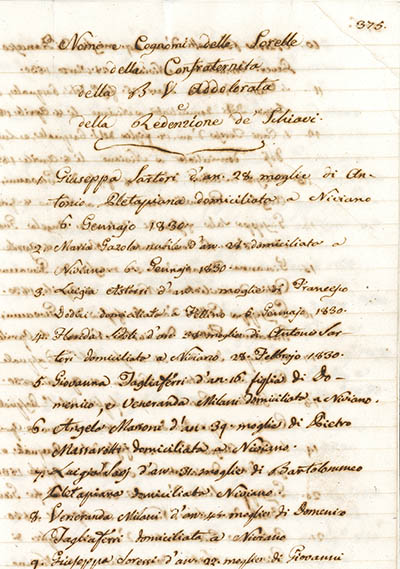 375.
Nomi e Cognomi delle Sorelle
della Confraternita
della B V Addolorata
e
della Redenzione de' Schiavi.
1. Giuseppa Sartori d'an. 28. moglie di An-
tonio Pletapiana domiciliata a Niviano
6. Gennajo 1830.
2. Maria nubile d'an. domiciliata a
Niviano 6. Gennajo 1830.
3. Luigia Astorri d'an. moglie di Francesco
Dodici domiciliata a 6. Gennajo 1830.
4. Florida d'an. 28 moglie di Antonio Sar-
tori domiciliata a Niviano. 28. Febbrajo 1830.
5. Giovanna Tagliaferri d'an. 16. figlia di Do-
menico, e Veneranda Milani domiciliata a Niviano.
6. Angela Manoni d'an. 34. moglie di Pietro
Massarotti domiciliata a Niviano.
7. Luigia d'an. 31. moglie di Bartolommeo
Pletapiana domiciliata Niviano
8. Veneranda Milani d'an. 45. moglie di Domenico
Tagliaferri domiciliata a Niviano
9. Giuseppa d'an. 22. moglie di Giovanni